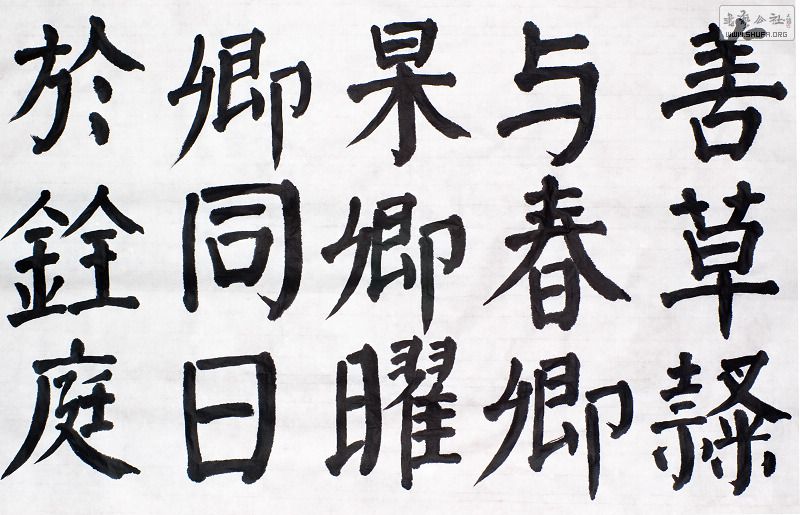 善草隸
与春卿
杲卿曜
卿同日
於銓庭
公社
WWW.SHUFA.ORG